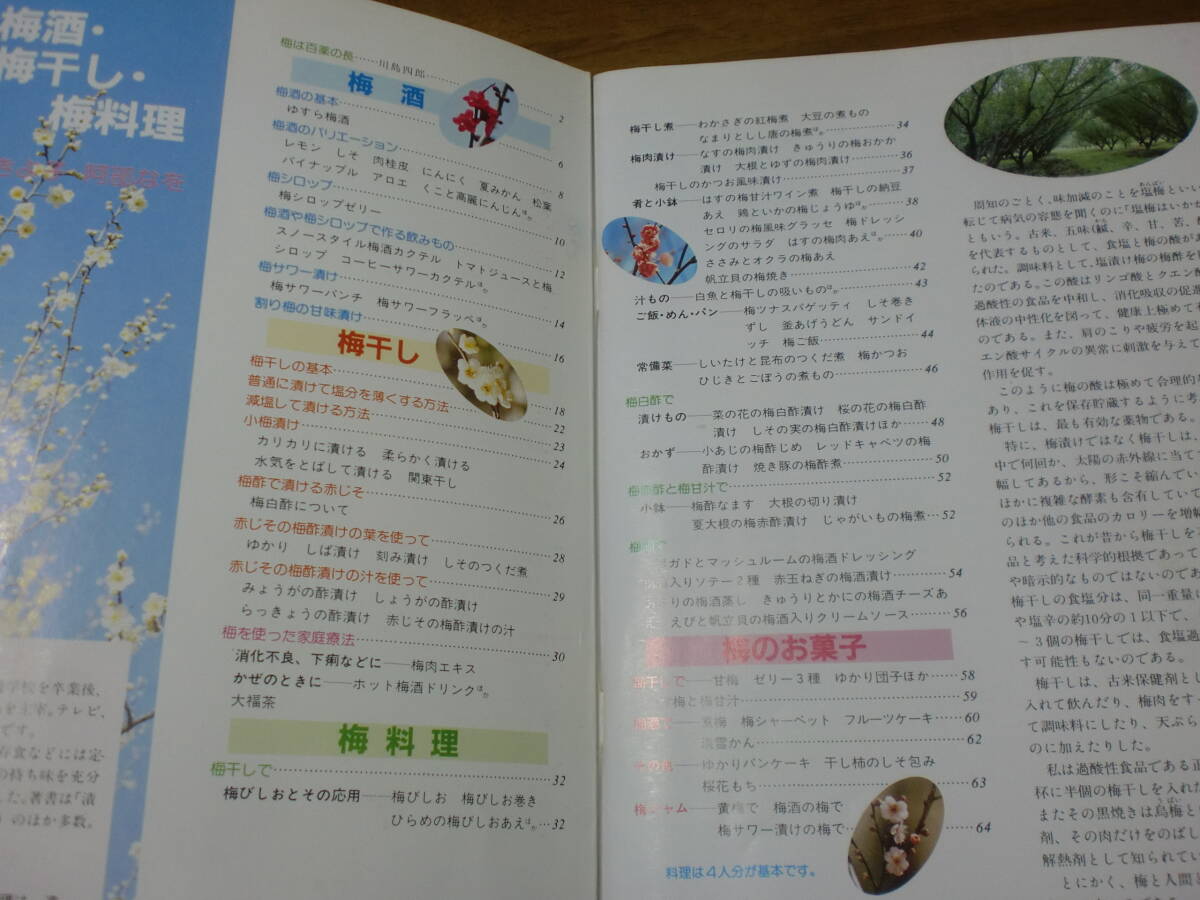 梅酒・
梅干し・
梅料理
学校を卒業後、
を主宰。テレビ、
です。
存食などには定
の持ち味を充分
した。著書は「漬
のほか多数。
梅は百薬の長……川島四郎
梅酒
梅酒の基本……2
ゆすら梅酒
梅酒のバリエーション……6
レモン しそ 肉桂皮 にんにく 夏みかん 松葉
パイナップル アロエ くこと高麗にんじんほか……8
梅シロップ
梅シロップゼリー……10
梅酒や梅シロップで作る飲みもの
スノースタイル梅酒カクテル トマトジュースと梅
シロップ コーヒーサワーカクテルほか……12
梅サワー漬け
梅サワーパンチ 梅サワーフラッペほか……14
割り梅の甘味漬け……16
梅干し
梅干しの基本……18
普通に漬けて塩分を薄くする方法……22
減塩して漬ける方法……23
小梅漬け……24
カリカリに漬ける 柔らかく漬ける
水気をとばして漬ける 関東干し
梅酢で漬ける赤じそ……26
梅白酢について
赤じその梅酢漬けの葉を使って……28
ゆかり しば漬け 刻み漬け しそのつくだ煮
赤じその梅酢漬けの汁を使って……29
みょうがの酢漬け しょうがの酢漬け
らっきょうの酢漬け 赤じその梅酢漬けの汁
梅を使った家庭療法……30
消化不良、下痢などに――梅肉エキス
かぜのときに――ホット梅酒ドリンクほか
大福茶
梅料理
梅干しで……32
梅びしおとその応用――梅びしお 梅びしお巻き
ひらめの梅びしおあえほか…32
梅干し煮――わかさぎの紅梅煮 大豆の煮もの
なまりとしし唐の梅煮ほか……34
梅肉漬け――なすの梅肉漬け きゅうりの梅おかか
漬け 大根とゆずの梅肉漬け……36
梅干しのかつお風味漬け……37
肴と小鉢――はすの梅甘汁ワイン煮 梅干しの納豆
あえ 鶏といかの梅じょうゆほか……38
セロリの梅風味グラッセ 梅ドレッシ
ングのサラダ はすの梅肉あえほか……40
ささみとオクラの梅あえ
帆立貝の梅焼き……42
汁もの――白魚と梅干しの吸いものほか……43
ご飯・めん・パン――梅ツナスパゲッティ しそ巻き
ずし 釜あげうどん サンドイ
ッチ 梅ご飯……44
常備菜――しいたけと昆布のつくだ煮 梅かつお
ひじきとごぼうの煮もの……46
梅白酢で
漬けもの――菜の花の梅白酢漬け 桜の花の梅白酢
漬け しその実の梅白酢漬けほか……48
おかず――小あじの梅酢じめ レッドキャベツの梅
酢漬け 焼き豚の梅酢煮……50
梅赤酢と梅甘汁で……52
小鉢――梅酢なます 大根の切り漬け
夏大根の梅赤酢漬け じゃがいもの梅煮…52
ガドとマッシュルームの梅酒ドレッシング
入りソテー2種 赤玉ねぎの梅酒漬け……54
りの梅酒蒸し きゅうりとかにの梅酒チーズあ
えびと帆立貝の梅酒入りクリームソース……56
梅のお菓子
梅干しで――甘梅 ゼリー3種 ゆかり団子ほか……58
梅と梅甘汁……59
梅酒で――煮梅 梅シャーベット フルーツケーキ……60
淡雪かん……62
その他――ゆかりパンケーキ 干し柿のしそ包み
桜花もち……63
梅ジャム――黄梅で 梅酒の梅で
梅サワー漬けの梅で……64
料理は4人分が基本です。
周知のごとく、味加減のことを塩梅といい
転じて病気の容態を聞くのに「塩梅はいかが
ともいう。古来、五味（鹹、辛、甘、苦、
を代表するものとして、食塩と梅の酸があ
られた。調味料として、塩漬け梅の梅酢を
たのである。この酸はリンゴ酸とクエン酸
過酸性の食品を中和し、消化吸収の促進
体液の中性化を図って、健康上極めて
のである。また、肩のこりや疲労を起
エン酸サイクルの異常に刺激を与えて
作用を促す。
このように梅の酸は極めて合理的な
あり、これを保存貯蔵するように考
梅干しは、最も有効な薬物である。
特に、梅漬けではなく梅干しは、
中で何回か、太陽の赤外線に当てて
幅してあるから、形こそ縮んでい
ほかに複雑な酵素も含有していて
のほか他の食品のカロリーを増幅
られる。これが昔から梅干しを
品と考えた科学的根拠であって
や暗示的なものではないのであ
梅干しの食塩分は、同一重量
や塩辛の約10分の1以下で、
～3個の梅干しでは、食塩過
す可能性もないのである。
梅干しは、古来保健剤とし
入れて飲んだり、梅肉をす
て調味料にしたり、天ぷら
のに加えたりした。
私は過酸性食品である正
杯に半個の梅干しを入れた
またその黒焼きは烏梅と
剤、その肉だけをのばし
解熱剤として知られてい
とにかく、梅と人間